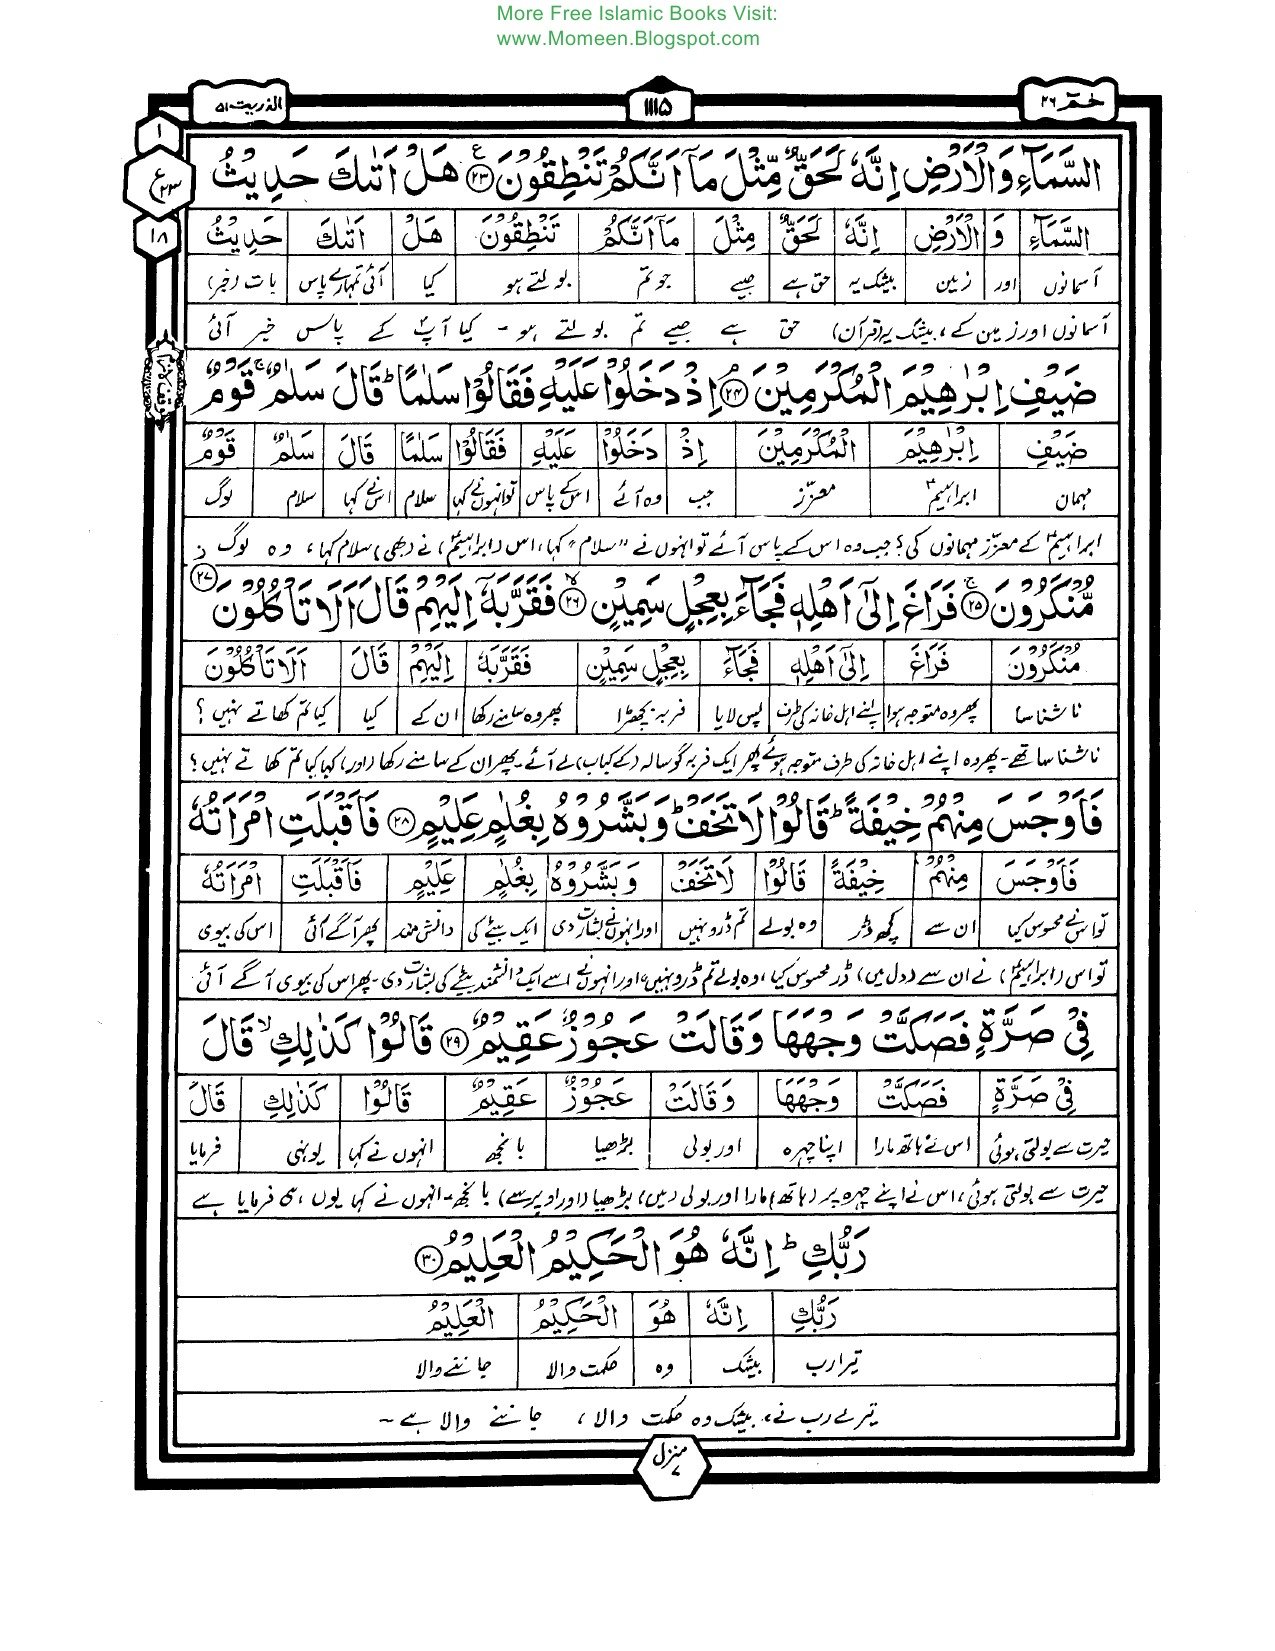 More Free Islamic Books Visit:
www.Momeen.Blogspot.com
حٰمٓ ۲۶
۱۱۱۵
الذّٰریٰت ۵۱
۱
ع ۲۳
۱۸
السَّمَآءِ وَالْاَرْضِ اِنَّهٗ لَحَقٌّ مِّثْلَ مَاۤ اَنَّكُمْ تَنْطِقُوْنَ ۲۳ هَلْ اَتٰىكَ حَدِیْثُ
السَّمَآءِ وَ الْاَرْضِ اِنَّهٗ لَحَقٌّ مِثْلَ مَاۤ اَنَّكُمْ تَنْطِقُوْنَ هَلْ اَتٰىكَ حَدِیْثُ
آسمانوں اور زمین بیشک یہ حق ہے جیسے جو تم بولتے ہو کیا آئی تمہارے پاس بات (خبر)
آسمانوں اور زمین کے، بیشک یہ (قرآن) حق ہے جیسے تم بولتے ہو۔ کیا آپؐ کے پاس خبر آئی
ضَیْفِ اِبْرٰهِیْمَ الْمُكْرَمِیْنَ ۲۴ اِذْ دَخَلُوْا عَلَیْهِ فَقَالُوْا سَلٰمًا ؕ قَالَ سَلٰمٌ ۚ قَوْمٌ
ضَیْفِ اِبْرٰهِیْمَ الْمُكْرَمِیْنَ اِذْ دَخَلُوْا عَلَیْهِ فَقَالُوْا سَلٰمًا قَالَ سَلٰمٌ قَوْمٌ
مہمان ابراہیمؑ معزّز جب وہ آئے اس کے پاس تو انہوں نے کہا سلام اس نے کہا سلام لوگ
ابراہیمؑ کے معزّز مہمانوں کی؟ جب وہ اس کے پاس آئے تو انہوں نے "سلام" کہا، اس (ابراہیمؑ) نے (بھی) سلام کہا، وہ لوگ
مُّنْكَرُوْنَ ۲۵ فَرَاغَ اِلٰۤى اَهْلِهٖ فَجَآءَ بِعِجْلٍ سَمِیْنٍ ۲۶ فَقَرَّبَهٗۤ اِلَیْهِمْ قَالَ اَلَا تَاْكُلُوْنَ ۲۷
مُنْكَرُوْنَ فَرَاغَ اِلٰۤى اَهْلِهٖ فَجَآءَ بِعِجْلٍ سَمِیْنٍ فَقَرَّبَهٗۤ اِلَیْهِمْ قَالَ اَلَا تَاْكُلُوْنَ
ناشناسا پھر وہ متوجہ ہوا اپنے اہل خانہ کی طرف پس لایا فربہ بچھڑا پھر وہ سامنے رکھا ان کے کہا کیا تم کھاتے نہیں؟
ناشناسا تھے۔ پھر وہ اپنے اہل خانہ کی طرف متوجہ ہوئے پھر ایک فربہ گوسالہ (کے کباب) لے آئے۔ پھر ان کے سامنے رکھا (اور) کہا کیا تم کھاتے نہیں؟
فَاَوْجَسَ مِنْهُمْ خِیْفَةً ؕ قَالُوْا لَا تَخَفْ ؕ وَبَشَّرُوْهُ بِغُلٰمٍ عَلِیْمٍ ۲۸ فَاَقْبَلَتِ امْرَاَتُهٗ
فَاَوْجَسَ مِنْهُمْ خِیْفَةً قَالُوْا لَا تَخَفْ وَبَشَّرُوْهُ بِغُلٰمٍ عَلِیْمٍ فَاَقْبَلَتِ امْرَاَتُهٗ
تو اس نے محسوس کیا ان سے کچھ ڈر وہ بولے تم ڈرو نہیں اور انہوں نے بشارت دی ایک بیٹے کی دانش مند پھر آگے آئی اس کی بیوی
تو اس (ابراہیمؑ) نے ان سے (دل میں) ڈر محسوس کیا، وہ بولے تم ڈرو نہیں، اور انہوں نے اسے ایک دانشمند بیٹے کی بشارت دی۔ پھر اس کی بیوی آگے آئی
فِیْ صَرَّةٍ فَصَكَّتْ وَجْهَهَا وَقَالَتْ عَجُوْزٌ عَقِیْمٌ ۲۹ قَالُوْا كَذٰلِكِ ۙ قَالَ
فِیْ صَرَّةٍ فَصَكَّتْ وَجْهَهَا وَقَالَتْ عَجُوْزٌ عَقِیْمٌ قَالُوْا كَذٰلِكِ قَالَ
حیرت سے بولتی ہوئی اس نے ہاتھ مارا اپنا چہرہ اور بولی بڑھیا بانجھ انہوں نے کہا یونہی فرمایا
حیرت سے بولتی ہوئی، اس نے اپنے چہرہ پر (ہاتھ) مارا اور بولی (میں) بڑھیا (اور اوپر سے) بانجھ۔ انہوں نے کہا یوں ہی فرمایا ہے
رَبُّكِ ؕ اِنَّهٗ هُوَ الْحَكِیْمُ الْعَلِیْمُ ۳۰
رَبُّكِ اِنَّهٗ هُوَ الْحَكِیْمُ الْعَلِیْمُ
تیرا رب بیشک وہ حکمت والا جاننے والا
تیرے رب نے، بیشک وہ حکمت والا، جاننے والا ہے۔
منزل ۷